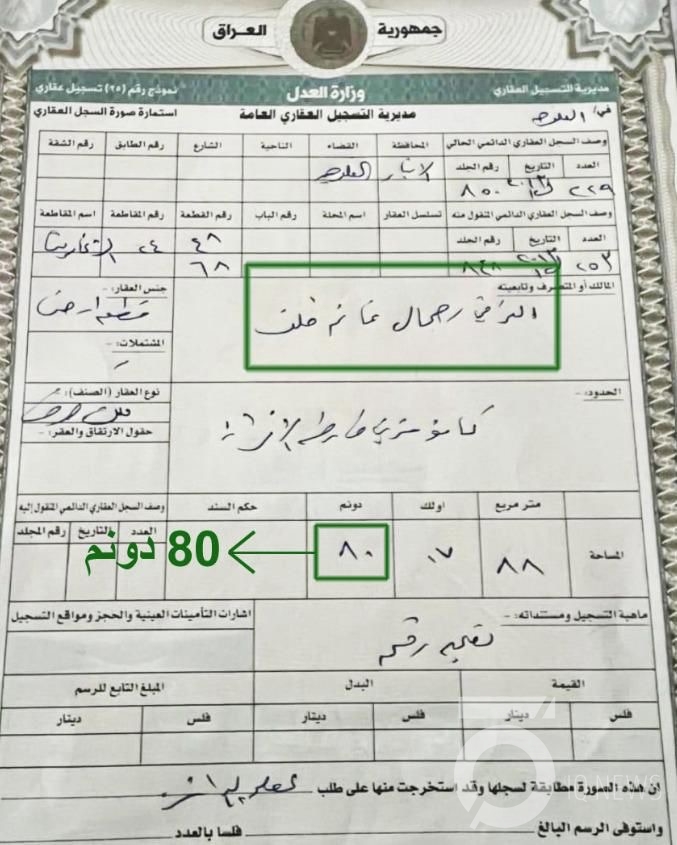 جمهورية العراق
مديرية التسجيل العقاري وزارة العدل نموذج رقم (٢٥) تسجيل عقاري
في/ مديرية التسجيل العقاري العامة استمارة صورة السجل العقاري
وصف السجل العقاري الدائمي الحالي المحافظة القضاء الناحية الشارع رقم الطابق رقم الشقة
العدد التاريخ رقم الجلد الانبار
٢٢٩ ٨٥٠
وصف السجل العقاري الدائمي المنقول منه تسلسل العقار اسم المحلة رقم الباب رقم القطعة رقم المقاطعة اسم المقاطعة
العدد التاريخ رقم الجلد ٤٨ ٢٤
٢٥٣ ٦٨
المالك أو المتصرف وتابعيته جنس العقار:-
قطعة ارض
المشتملات:-
الحدود:- نوع العقار (الصنف):-
حقول الارتفاق والعقر:-
متر مربع اولك دونم حكم السند وصف السجل العقاري الدائمي المنقول إليه
العدد التاريخ رقم المجلد
المساحة ٨٨ ١٧ ٨٠ 80 دونم
ماهية التسجيل ومستنداته:- اشارات التأمينات العينية والحجز ومواقع التسجيل
القيمة البدل المبلغ التابع للرسم
فلس دينار فلس دينار فلس دينار
ان هذه الصورة مطابقة لسجلها وقد استخرجت منها على طلب
واستوفى الرسم البالغ فلسا بالعدد
IQ NEWS